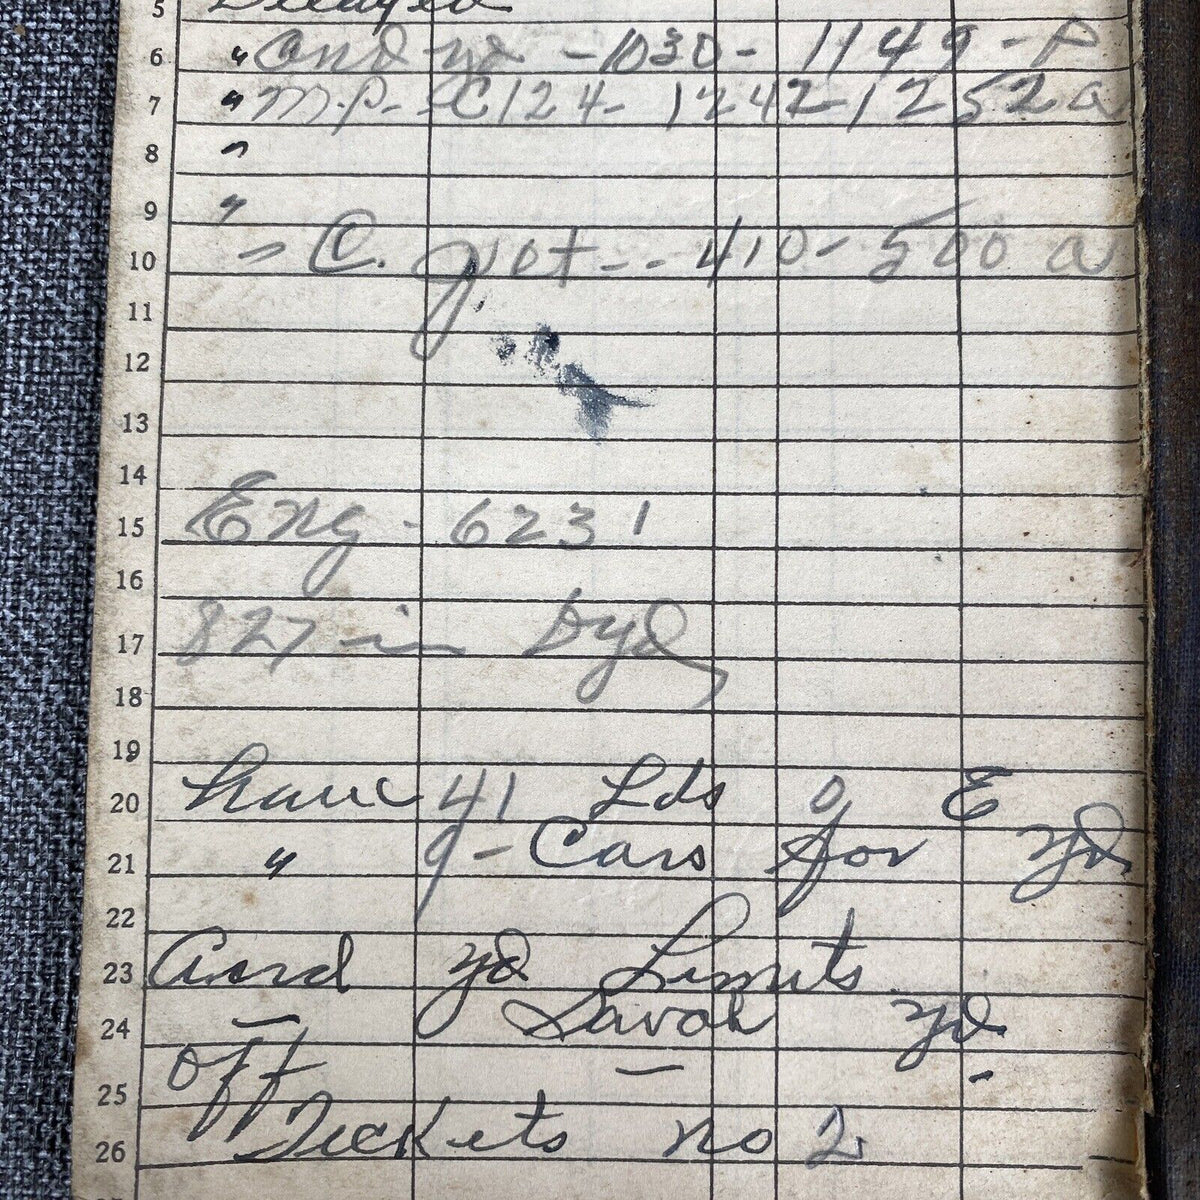 5 Delayed
6 " and yd - 1030 - 1149 - P
7 " M.P. - C124 - 1242 - 1252 a
8 "
9 "
10 " C. Jct -- 410 - 500 a
11
12
13
14
15 Eng - 6231
16
17 827 in Dyd
18
19
20 have 41 Lds g E
21 " 9 - Cars for yd
22
23 yd Limits
24 yd
25 off
26 Tickets no 2